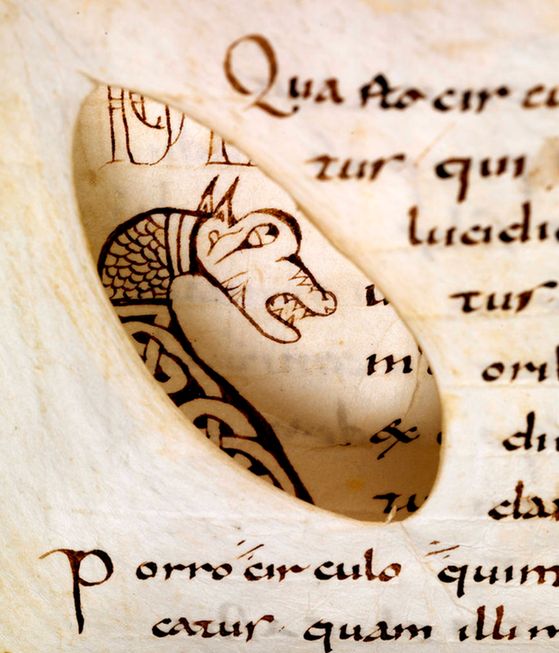 Qua fto cir cu
tur qui
lucidi
tur
m orib
& di
tu claa
Porro cir culo quim
catur quam illim